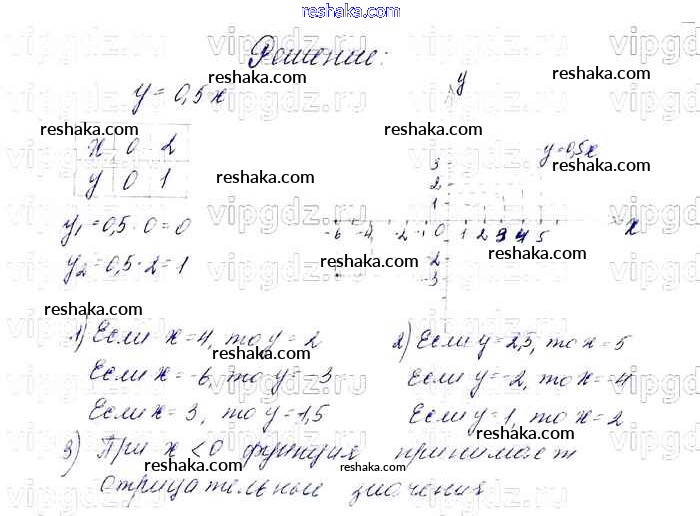 reshaka.com
Решение:
reshaka.com
reshaka.com
y = 0,5x
y
reshaka.com
reshaka.com
x 0 2
y 0 1
y=0,5x
3
2
1
reshaka.com
reshaka.com
y₁=0,5·0=0
-6 -4 -2 -1 0 1 2 3 4 5
x
y₂=0,5·2=1
-2
-3
reshaka.com
reshaka.com
reshaka.com
reshaka.com
1) Если x=4, то y=2
2) Если y=2,5, то x=5
reshaka.com
reshaka.com
Если x=-6, то y=-3
Если y=-2, то x=-4
reshaka.com
reshaka.com
Если x=3, то y=1,5
Если y=1, то x=2
3) При x<0 функция принимает
reshaka.com
reshaka.com
отрицательные значения
reshaka.com
vipgdz.ru